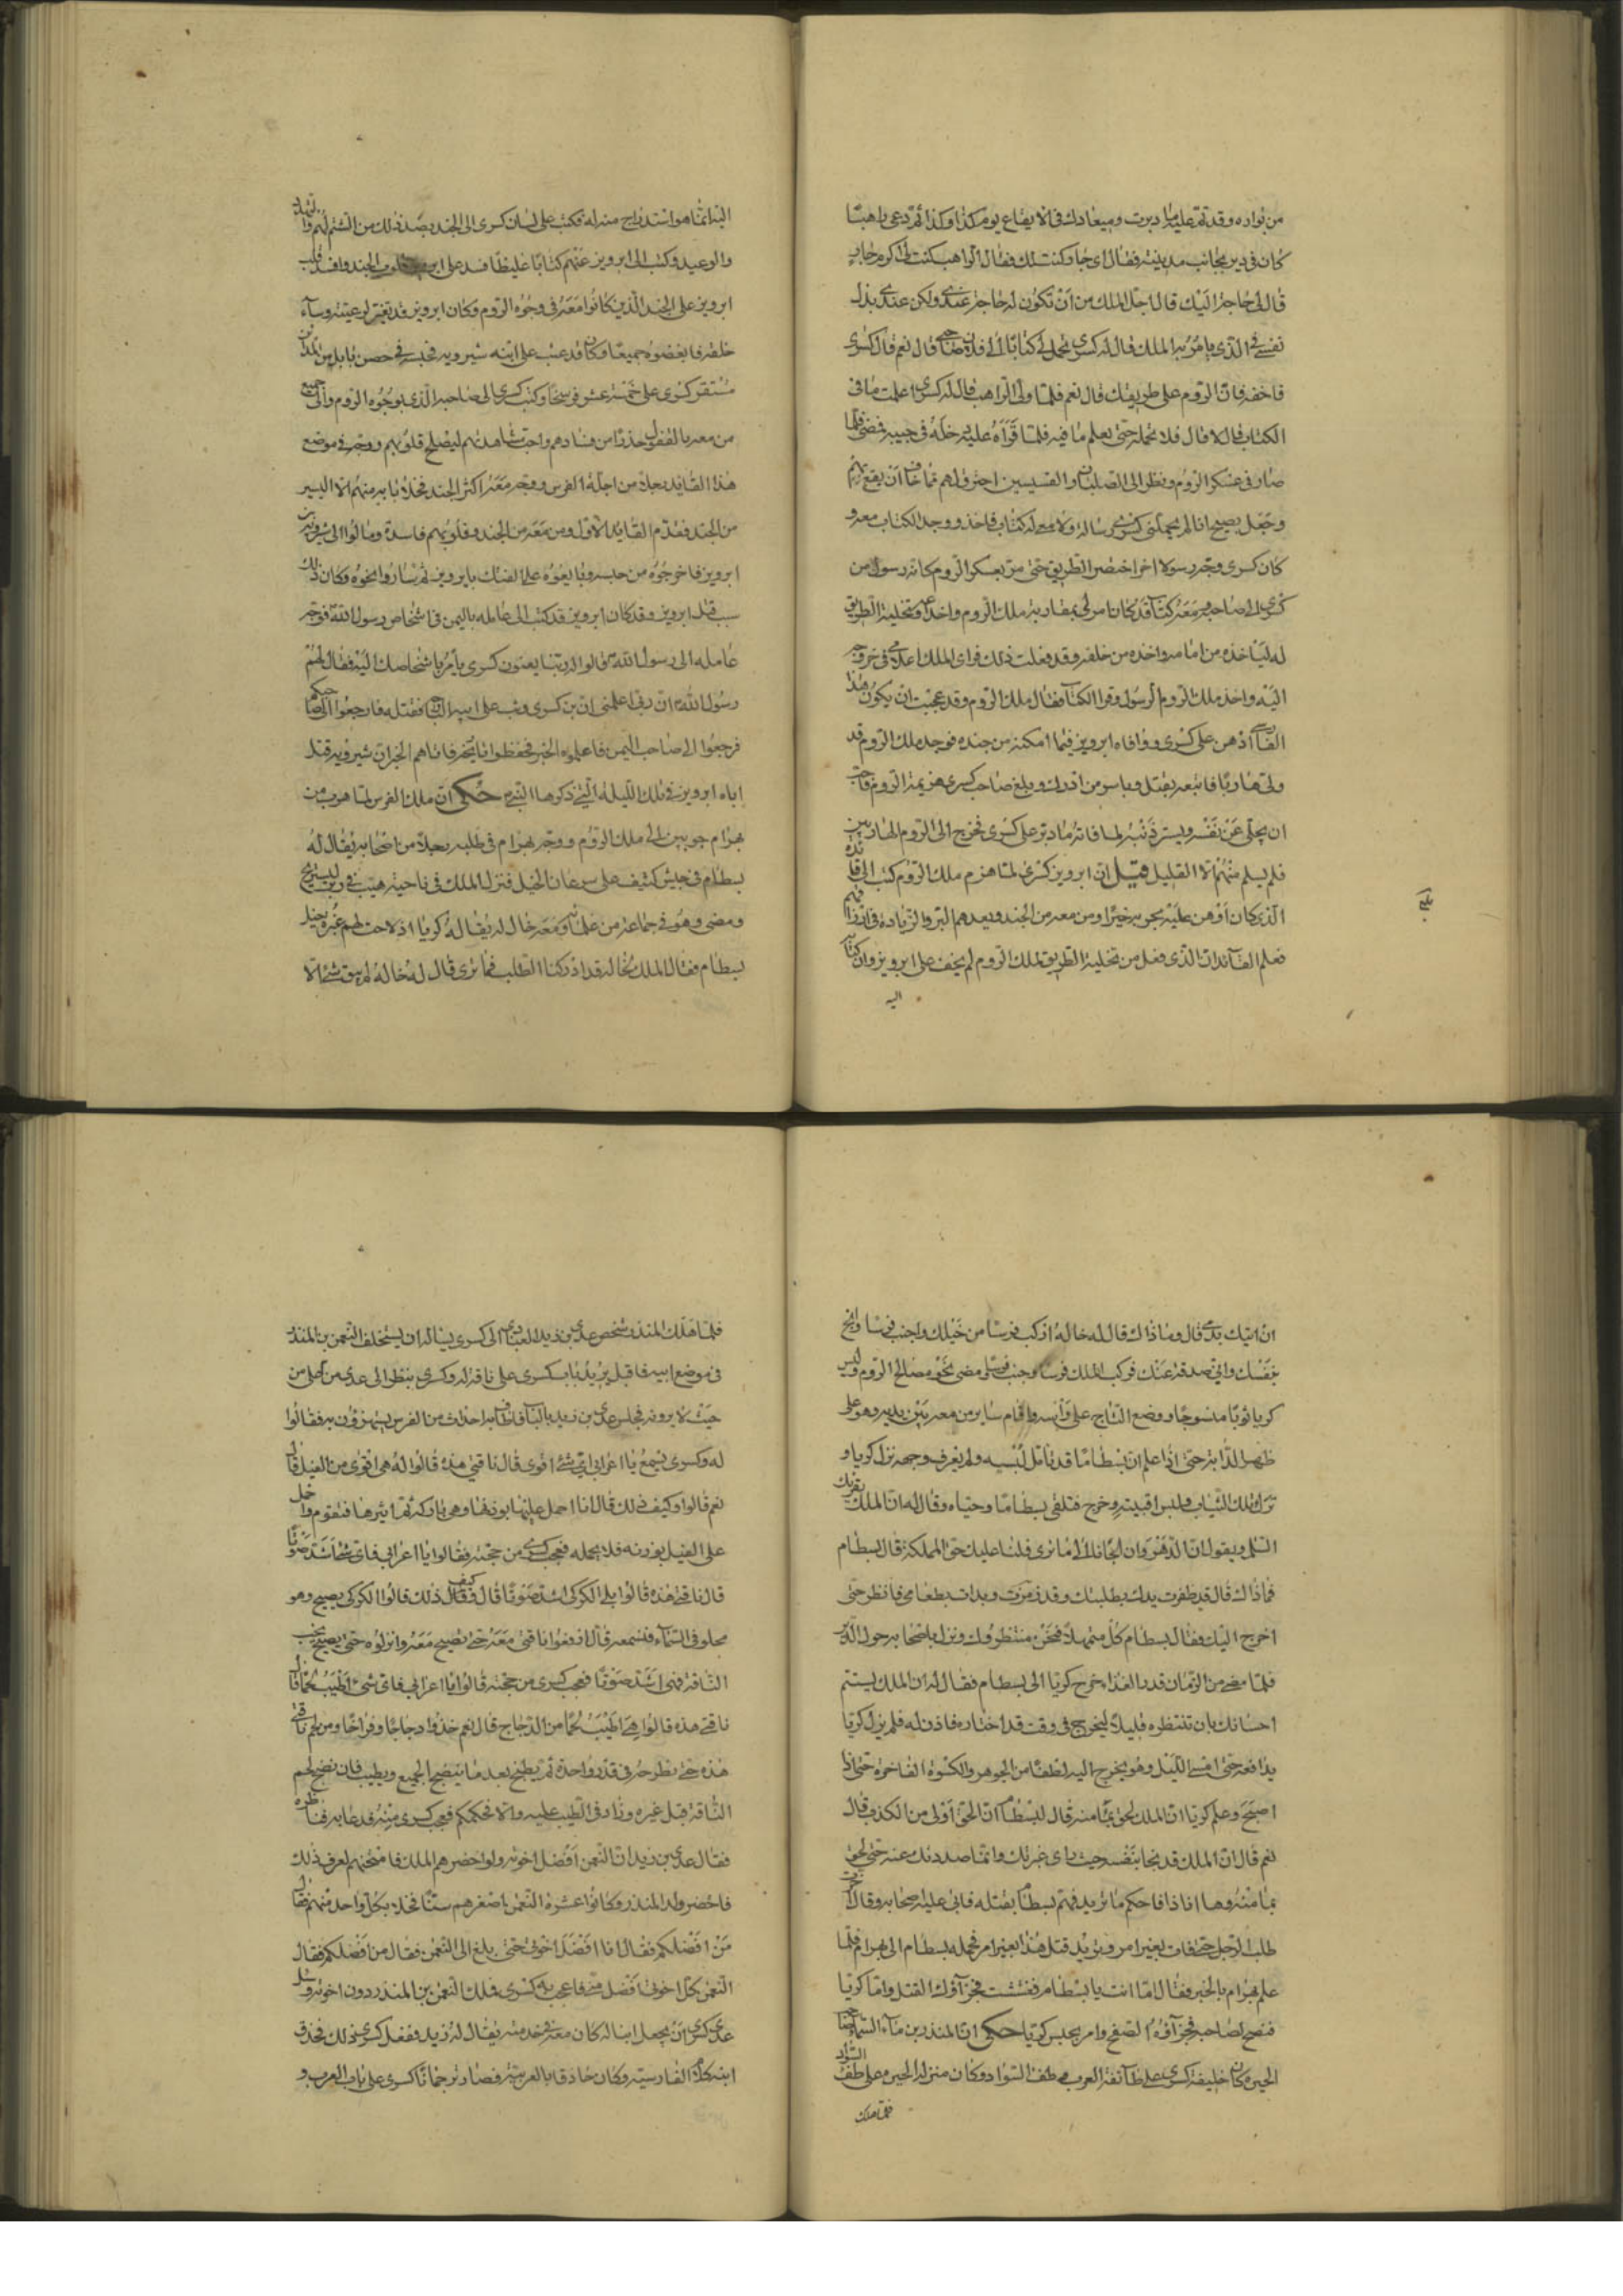 من بواده وقد تم عليه ما دبرت وميعادك في الايقاع يوم كذا وكذا ثم دعى راهبا
كان في دير بجانب مدينته فقال اي جار كنت لك فقال الراهب كنت لي اكرم جار
قال لي حاجة اليك قال اجل الملك من ان تكون له حاجة عندي ولكن عندي بذل
نفسي في الذي يامر به الملك قال له كسرى تحمل لي كتابا الى فلان صاحبي قال نعم قال كسرى
فاخفه فان الروم على طريقك قال نعم فلما ولى الراهب قال له كسرى اعلمت ما في
الكتاب قال لا قال فلا تحمله حتى تعلم ما فيه فلما قرأه عليه دخله في جيبه فمضى فلما
صار في عسكر الروم ونظر الى الصلبان والقسيسين احترق لهم مما خاف ان يقع بهم
وجعل يصيح انا لم يحملني كسرى رسالة ولا معي له كتاب فاخذ ووجد الكتاب معه و
كان كسرى وجه رسولا اخر اختصر الطريق حتى مر بعسكر الروم كانه رسول من
كسرى الى صاحبه معه كتاب قد كان امر لي بمقاربة ملك الروم واخداعه وتخلية الطريق
له لياخذه من امامه واخذه من خلفه وقد فعلت ذلك فراى الملك اعلامي في خروجه
اليه واخذ ملك الروم الرسول وقرا الكتاب فقال ملك الروم وقد عجبت ان يكون هذا
الفارسي ادهن على كسرى ووافاه ابرويز فيما امكنه من جنده فوجد ملك الروم قد
ولى هاربا فاتبعه يقتل وياسر من ادرك وبلغ صاحب كسرى هزيمة الروم فاحب
ان يجلي عن نفسه ويستر ذنبه لما فاته ما دبر على كسرى فخرج الى الروم الهاربين
فلم يسلم منهم الا القليل قيل ان ابرويز كسرى لما هزم ملك الروم كتب الى قائده
الذي كان ادهن عليه يجزيه خيرا ومن معه من الجند ويعدهم البر والزيادة في ارزاقهم
فعلم القائد ان الذي فعل من تخلية الطريق لملك الروم لم يخف على ابرويز وان كتابه
اليه
بلغ
اليه انما هو استدراج منه له فكتب على لسان كسرى الى الجند بضد ذلك من الشتم لهم والتهدد
والوعيد وكتب الى ابرويز عنهم كتابا غليظا فسد على ابرويز قلوب الجند وافسد قلب
ابرويز على الجند الذين كانوا معه في وجوه الروم وكان ابرويز قد تغير لرعيته وساء
خلقه فابغضوه جميعا وكان قد عتب على ابنه شيرويه فحبسه في حصن بابل من المدائن
مستقر كسرى على خمسة عشر فرسخا وكتب كسرى الى صاحبه الذي بوجوه الروم والى جميع
من معه بالقفول حذرا من فسادهم واحب مشاهدتهم ليصلح قلوبهم ووجه في موضع
هذا القايد رجلا من اجلة الفرس ووجه معه اكثر الجند فخلا بابه منهم الا اليسير
من الجند فقدم القايد الاول ومن معه من الجند وقلوبهم فاسدة ومالوا الى شيرويه بن
ابرويز فاخرجوه من حبسه وبايعوه على الفتك بابرويز ثم ساروا نحوه وكان ذلك
سبب قتل ابرويز وقد كان ابرويز قد كتب الى عامله باليمن في اشخاص رسول الله فوجه
عامله الى رسول الله قالوا ان ربنا يعنون كسرى يامر باشخاصك اليه فقال لهم
رسول الله ان ربي اعلمني ان بن كسرى وثب على ابيه البارحة فقتله فارجعوا الى صاحبكم
فرجعوا الى صاحب اليمن فاعلموه الخبر فحفظوا تاريخه فاتاهم الخبر ان شيرويه قتل
اباه ابرويز في تلك الليلة التي ذكرها النبي حكي ان ملك الفرس لما هرب من
بهرام جوبين الى ملك الروم ووجه بهرام في طلبه رجلا من اصحابه يقال له
بسطام في جيش كثيف على سرعان الخيل فنزل الملك في ناحية هيت في دير ليستريح
ومضى وهو في جماعة من غلمانه ومعه خال له يقال له كرديا اذ لاحت لهم غبرة خيل
بسطام فقال الملك لخاله قد ادركنا الطلب فما ترى قال له خاله لم يبق شئ الا
ان اقيك بدمي قال وما ذاك قال له خاله اركب فرسا من خيلك واجنب فرسا وانج
بنفسك واني صدقة عنك فركب الملك فرسا وجنب فرسا ومضى نحو مصالح الروم ولبس
كرديا ثوبا منسوجا ووضع التاج على رأسه واقام ساير من معه بين يديه وهو على
ظهر الدابة حتى اذا علم ان بسطاما قد تامل لبسه ولم يعرف وجهه نزل كرديا و
ترك تلك الثياب ولبس اقبيته وخرج فتلقى بسطاما وحياه وقال له ان الملك يقرئك
السلم ويقول ان الدهر وان الجانا الى ما ترى فلنا عليك حق المملكة قال بسطام
فما ذاك قال قد ظفرت يدك بطلبتك وقد ذمرت وبدات بطعامي فانظر حتى
اخرج اليك فقال بسطام كل متمهلا فنحن منتظروك ونزل باصحابه حول الدير
فلما مضى من الزمان قدر الغداء خرج كرديا الى بسطام فقال له ان الملك يستتم
احسانك بان تنتظره قليلا ليخرج في وقت قد اختاره فاذن له فلم يزل كرديا
يدافعه حتى امسى الليل وهو يخرج اليه لطفا من الجوهر والكسوة الفاخرة حتى اذا
اصبح وعلم كرديا ان الملك لحق بمامنه قال لبسطام ان الحق اولى من الكذب قال
نعم قال ان الملك قد نجا بنفسه حيث راى غبرتك وانما صددتك عنه حتى لحق
بمامنه وها انا ذا فاحكم ما تريد فهم بسطام بقتله فابى عليه اصحابه وقالوا
طلب الرجل حتى فات بغير امر وتريد قتل هذا بغير امر فحمله بسطام الى بهرام فلما
علم بهرام بالخبر فقال اما انت يا بسطام فغششت فجزاؤك القتل واما كرديا
فنصح لصاحبه فجزاؤه الصفح وامر بحبس كرديا حكي ان المنذر بن ماء السماء صاحب
الحيرة كان خليفة كسرى على طائفة العرب مطف السواد وكان منزله الحيرة على طف السواد
فلما هلك
فلما هلك المنذر شخص عدي بن زيد العبادي الى كسرى يساله ان يستخلف النعمن بن المنذر
في موضع ابيه فاقبل يريد باب كسرى على ناقة له وكسرى ينظر الى عدي من اعلى من
حيث لا يرونه فجلس عدي بن زيد بالباب فاطاف به احداث من الفرس يستهزؤن به فقالوا
له وكسرى يسمع يا اعرابي اي شئ اقوى قال ناقتي هذه قالوا له هي اقوى من الفيل قال
نعم قالوا وكيف ذلك قال انا احمل عليها بوزنها وهي باركة ثم اثيرها فتقوم واحمل
على الفيل بوزنه فلا يحمله فعجب كسرى من حجته فقالوا يا اعرابي فاي شئ اشد صوتا
قال ناقتي هذه قالوا بلى الكركي اشد صوتا قال فقال كيف ذلك قالوا الكركي يصيح وهو
محلق في السماء فنسمعه قال ارفعوا ناقتي معه حتى تصيح معه وانزلوه حتى يصيح بجنب
الناقة فمن اشد صوتا فعجب كسرى من حجته قالوا يا اعرابي فاي شئ اطيب لحما قال
ناقتي هذه قالوا هي اطيب لحما من الدجاج قال نعم خذوا دجاجا وفراخا ومن لحم ناقتي
هذه حتى تطرح في قدر واحدة ثم تطبخ بعد ما ينضج الجميع ويطيب فان نضج لحم
الناقة قبل غيره وزاد في الطيب عليه والا فحكمكم فعجب كسرى منه فدعا به فناظره
فقال عدي بن زيد ان النعمن افضل اخوته ولو احضرهم الملك فامتحنهم لعرف ذلك
فاحضر ولد المنذر وكانوا عشرة النعمن اصغرهم سنا فخلا بكل واحد منهم فقال
من افضلكم فقال انا افضل اخوتي حتى بلغ الى النعمن فقال من افضلكم فقال
النعمن كل اخوتي افضل مني فاعجب به كسرى فملك النعمن بن المنذر دون اخوته وسال
عدي كسرى ان يجعل ابنا له كان معه في خدمته يقال له زيد ففعل كسرى ذلك فحذق
ابنه كلام الفارسية وكان حاذقا بالعربية فصار ترجمانا لكسرى على باب العرب و